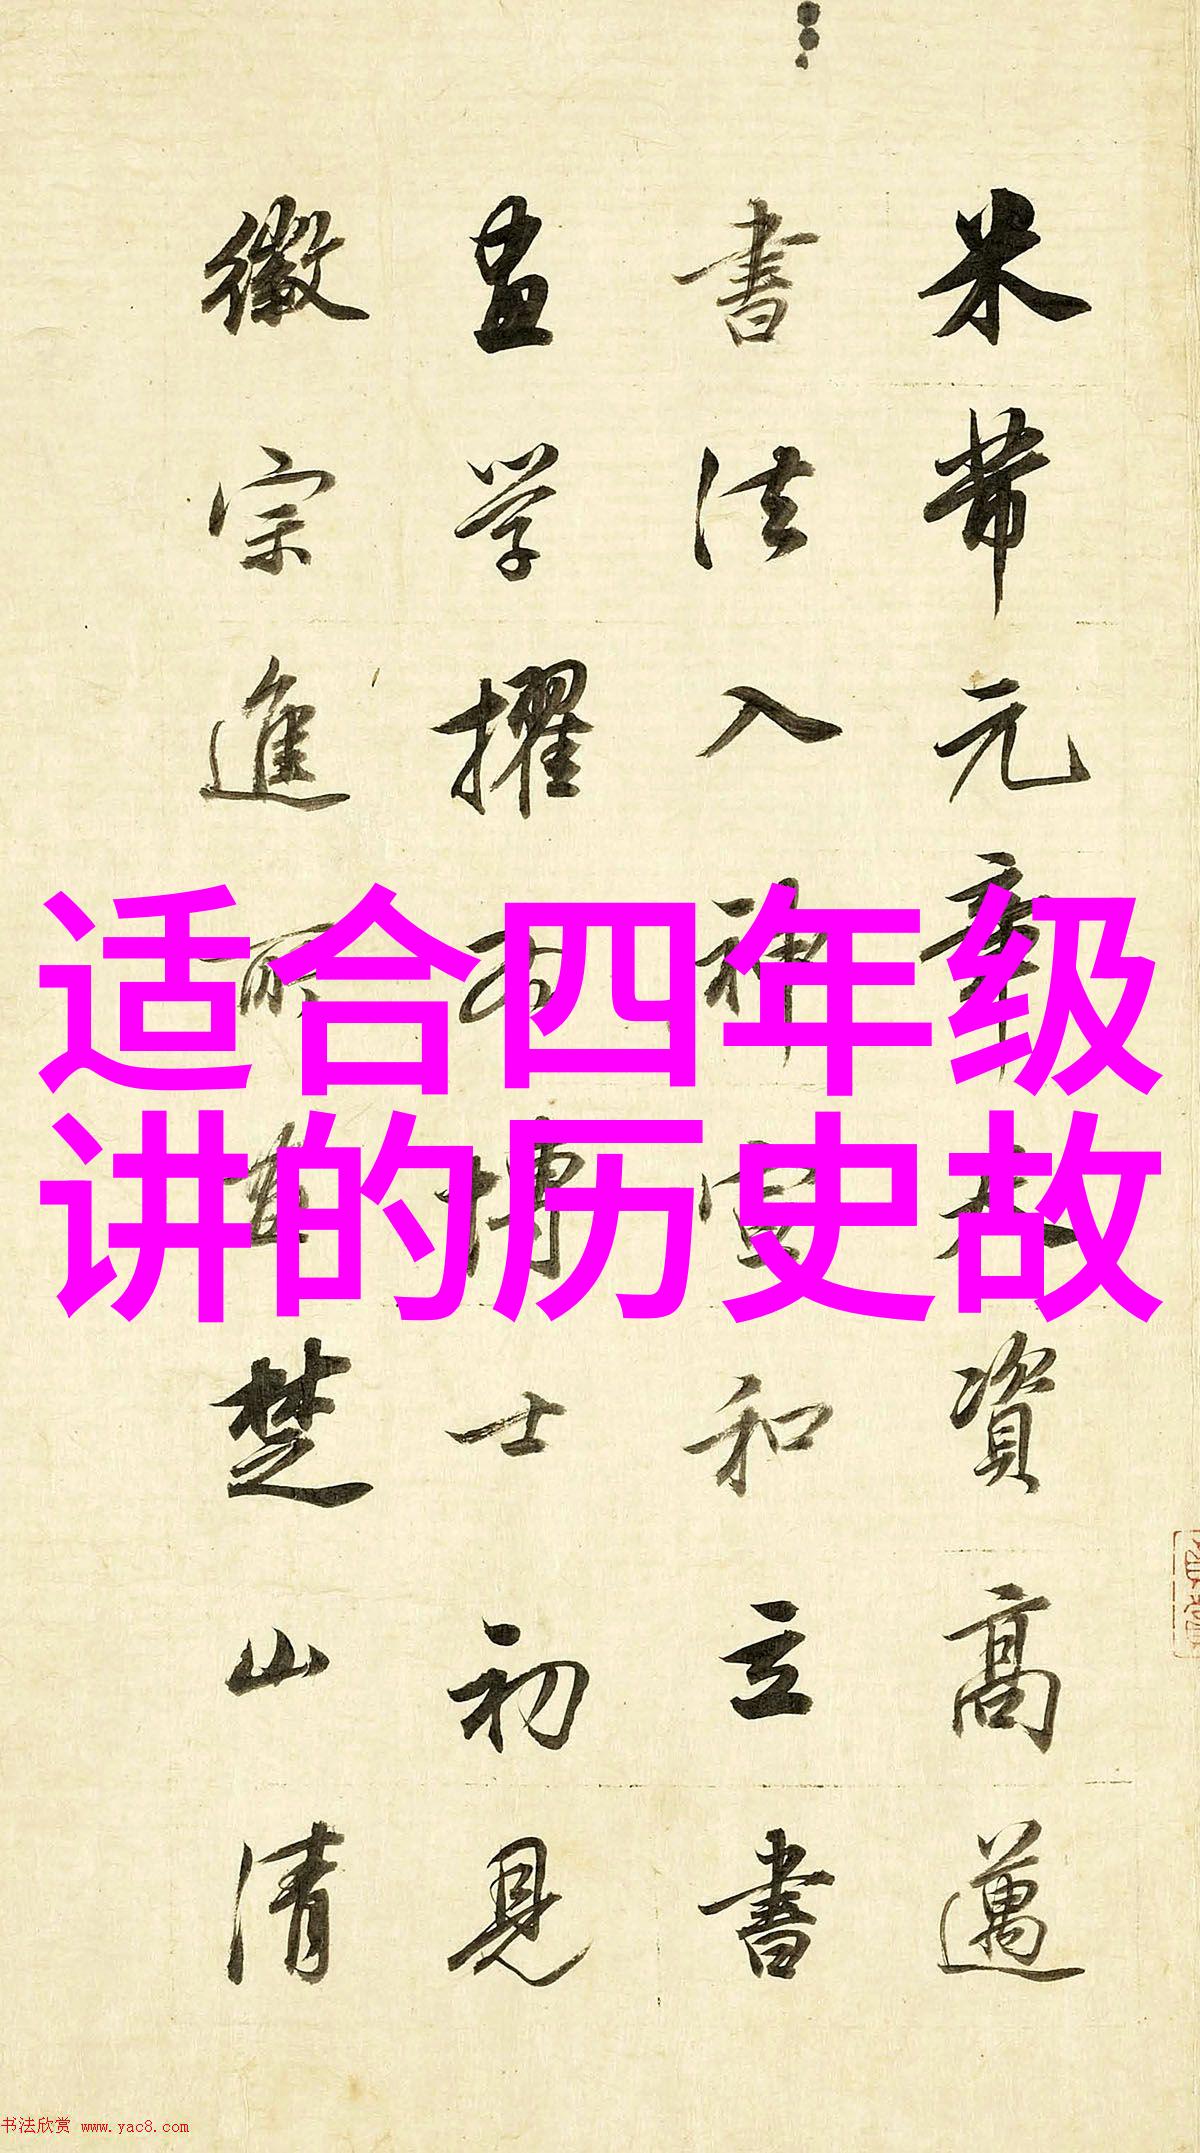 米芾元章天資高邁
書法入神宣和立書
畫学擢為博士初見
徽宗進所畫楚山清
适合四年级
讲的历史故
书法欣赏 www.yac8.com